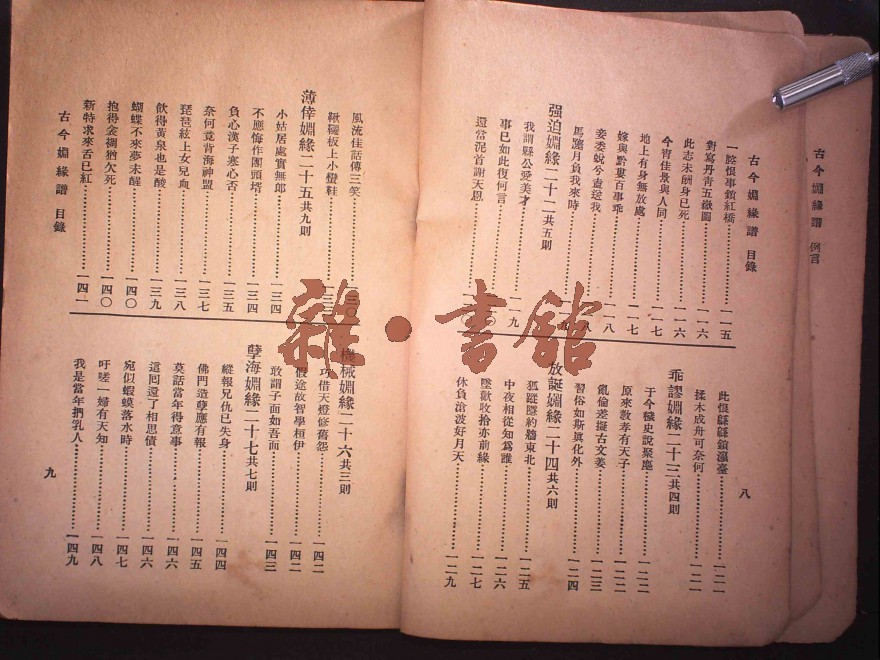 古今婣緣譜 例言
古今婣緣譜 目錄
一腔恨事鎖紅橋 一一五
對寫丹青五嶽圖 一一六
此志未酬身已死 一一六
今宵佳景與人同 一一七
地上有身無放處 一一七
嫁與黔婁百事乖 一一八
妾委蛻兮盍逆我
馬蹏月負我來時
强迫婣緣二十二共五則
我謂縣公愛美才
事已如此復何言
還當泥首謝天恩
此恨緜緜鎖瀛臺 一二一
揉木成舟可奈何 一二一
乖謬婣緣二十三共四則
于今穢史說聚麀 一二二
原來教孝有天子 一二二
亂倫差擬古文姜 一二三
習俗如斯眞化外 一二四
放誕婣緣二十四共六則
狐蹤墜約牆東北 一二五
中夜相從知爲誰 一二六
墜歡收拾亦前緣 一二七
休負滄波好月天 一二九
八
風流佳話傳三笑
鞦韆板上小蠻鞋
薄倖婣緣二十五共九則
小姑居處實無郎 一三四
不應悔作團頭壻 一三四
負心漢子寒心否 一三五
奈何竟背海神盟 一三七
琵琶絃上女兒血 一三八
飲得黃泉也是酸 一三九
蝴蝶不來夢未醒 一四〇
抱得衾裯猶欠死 一四〇
新特求來舌已紅 一四一
古今婣緣譜 目錄
機械婣緣二十六共三則
巧借天燈修舊怨 一四二
假途故智學桓伊 一四二
敢謂子面如吾面 一四三
孽海婣緣二十七共七則
縱報兄仇已失身 一四四
佛門造孽應有報 一四五
莫話當年得意事 一四六
這囘還了相思債 一四六
宛似蝦蟆落水時 一四七
吁嗟一婦有天知 一四八
我是當年捫乳人 一四九
九
雜·書館